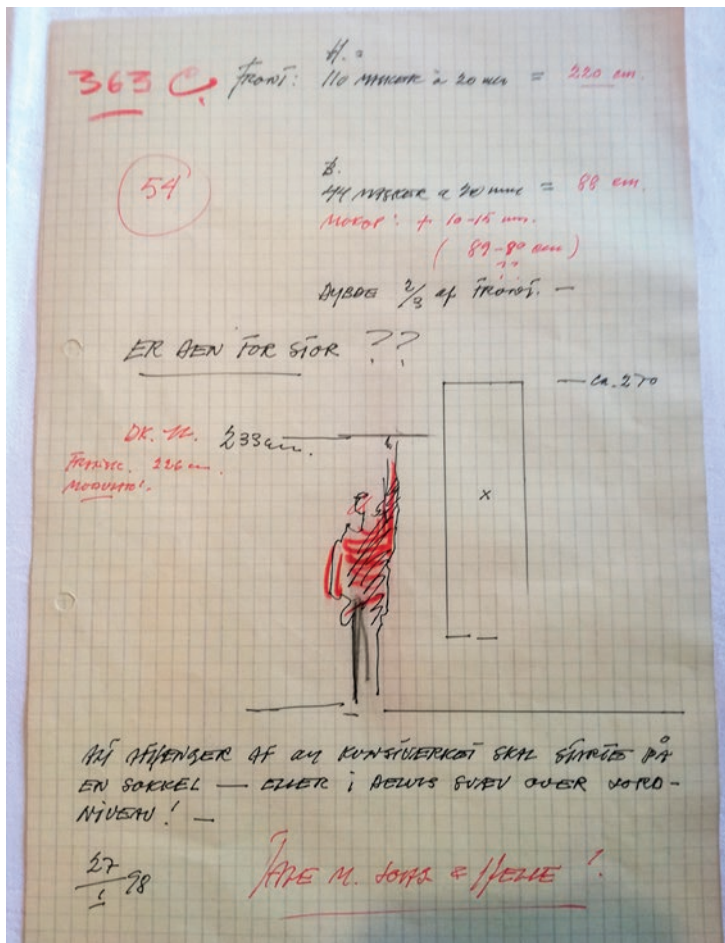 363 C
Front: H.:
110 MASKER à 20 mm = 220 cm.
54
B.
44 MASKER à 20 mm = 88 cm.
+ 10-15 mm.
DYBDE 2/3 af FRONT. —
ER DEN FOR STOR ??
— ca. 270
233 cm.
226 cm
x
ALT AFHÆNGER AF OM KUNSTVÆRKET SKAL STARTE PÅ
EN SOKKEL — ELLER i DELVIS SVÆV OVER JORD-
NIVEAU! —
27/1 98
TALE M. &amp; HELLE!